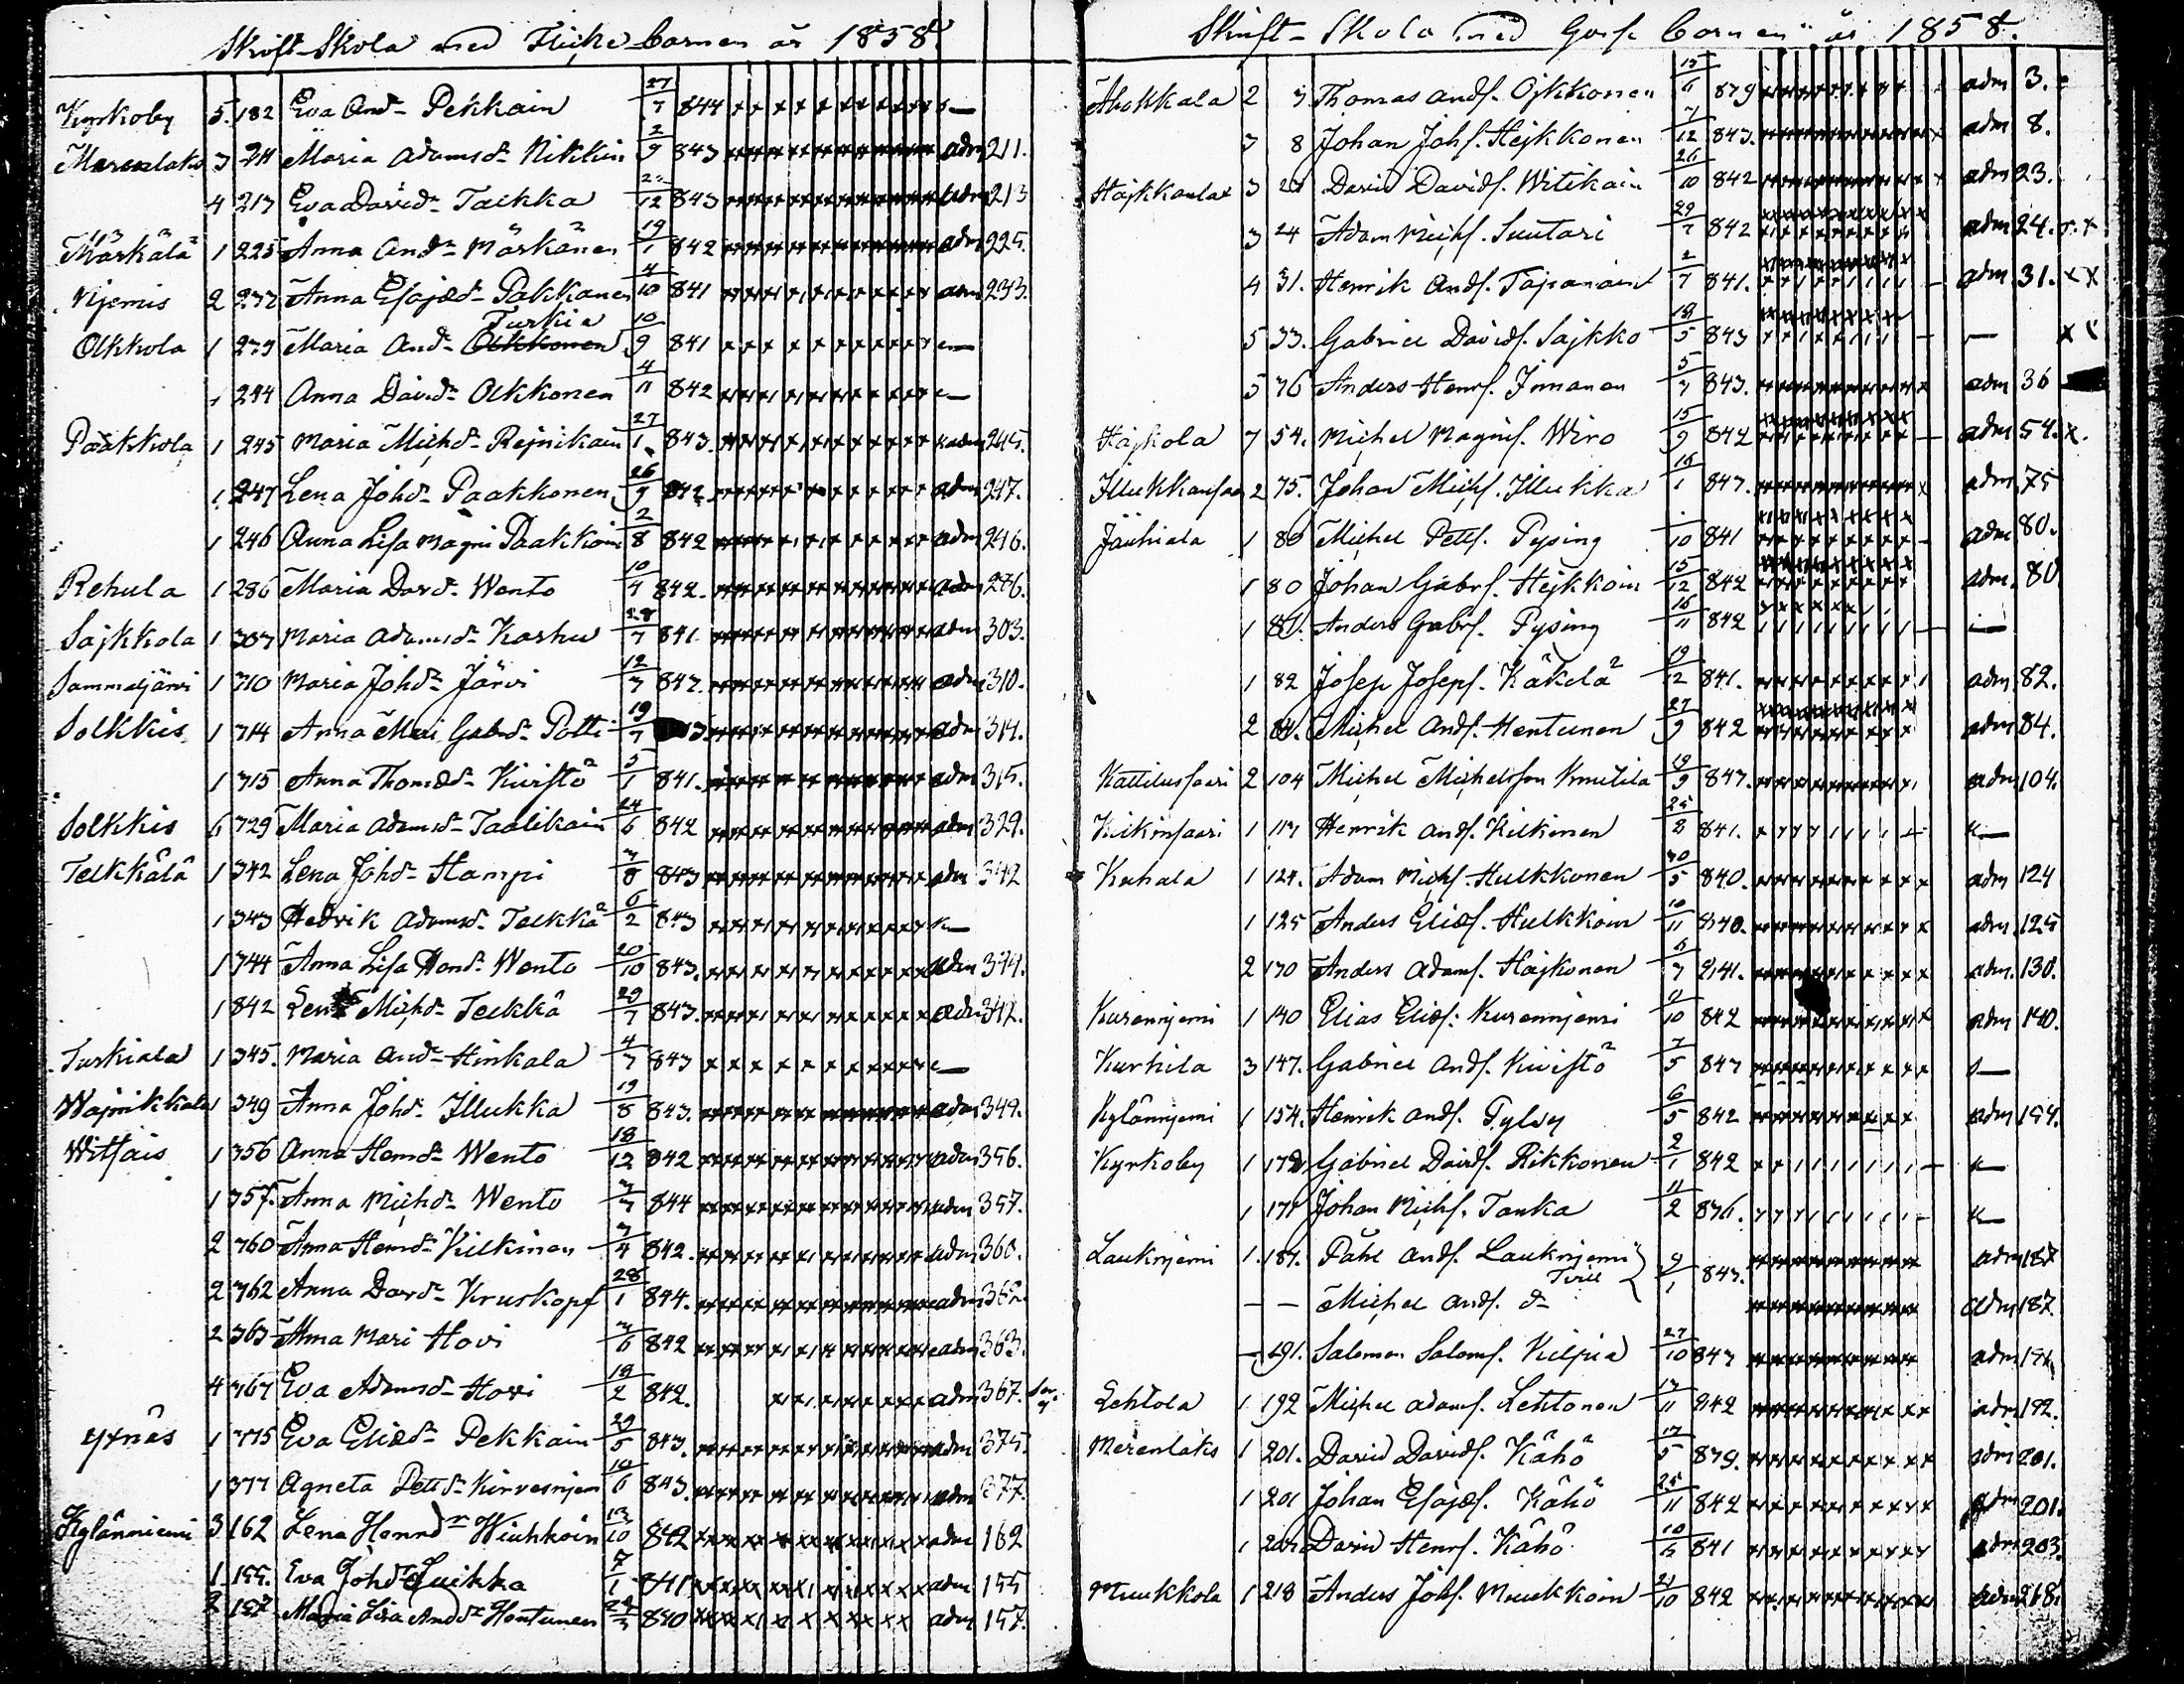 Skrift-Skola med Flicke barnen år 1858.
Kyrkoby 5. 182 Eva Andn Pekkain 27/7 844
3 211 Maria Adamsdn Nikkin 2/9 843 adm 211.
4 213 Eva Davidn Talkka 12 843 adm 213
Märkälä 1 225 Anna Andn Märkänen 19/1 842 adm 225.
Njemis 2 232 Anna Esajædn Pakkanen 4/10 841 adm 233.
Turkia
Olkkola 1 239 Maria Andn Olkkonen 10/9 841
1 244 Anna Davidn Olkkonen 4/11 842
Paakkola 1 245 Maria Michdn Rejnikain 27/1 843. adm 245.
1 247 Lena Johdn Paakkonen 26/9 842 adm 247.
1 246 Anna Lisa Magni Paakkoin 2/8 842 adm 246.
Rehula 1 286 Maria Davdn Wento 10/4 842. adm 286.
Sajkkola 1 303 Maria Adamsdn Karhu 28/7 841 adm 303.
Sammaljärvi 1 310 Maria Johdn Järvi 12/7 842. adm 310.
Solkkis 1 314 Anna Mari Gabdn Potti 19/7 3. adm 314.
1 315 Anna Thomædn Kivistö 5/1 841. adm 315.
Solkkis 6 329 Maria Adamsdn Taalikain 24/6 842 adm 329.
Telkkälä 1 342 Lena Johdn Hampi 7/8 843 adm 342
1 343 Hedvik Adamsdn Telkkä 6/2 843
1 344 Anna Lisa Hendn Wento 20/10 843. adm 344.
1 842 Lena Michdn Telkkä 29/7 843. adm 342.
Turkiala 1 345. Maria Andn Hinkala 4/7 843
Wajnikkala 1 349 Anna Johdn Illukka 19/8 843. adm 349.
Witsais 1 356 Anna Hemdn Wento 18/12 842 adm 356.
1 357. Anna Michdn Wento 3/7 844 adm 357.
2 360 Anna Hemdn Kilkinen 7/4 842. adm 360.
2 362 Anna Davdn Kruskopf 28/1 844. adm 362.
2 363 Anna Mari Hovi 3/6 842 adm 363.
4 367 Eva Adamsdn Hovi 19/2 842. adm 367.
Yxnäs 1 375 Eva Eliædn Pekkain 29/5 843. adm 375.
1 377 Agneta Petdn Kirvesnjem 10/6 843. adm 377.
Kylänniemi 3 162 Lena Henrdn Wiuhkoin 13/10 842 adm 162
1 155. Eva Johdn Luikka 7/1 841 adm 155
2 157 Maria Lisa Anddn Hentunen 840 adm 157.
Skrift-Skola med Goss barnen år 1858.
Ahokkala 2 3 Thomas Ands. Ojkkonen 15/6 839 adm 3.
3 8 Johan Johs. Hejkkonen 7/12 843. adm 8.
3 23 David Davids. Witikain 26/10 842 adm 23.
3 24 Adam Michs. Suutari 29/7 842 adm 24.
4 31. Henrik Ands. Tapanain 2/7 841. adm 31. xx
5 33. Gabriel Davids. Sajkko 19/5 843
5 36 Anders Henrs. Inmanen 5/7 843. adm 36
Hajkola 7 54. Michel Magnis. Wiro 15/9 842 adm 54. x.
2 75. Johan Michs. Illukka 16/1 843. adm 75
Jäuhiala 1 80 Michel Petts. Pysing 10 841 adm 80.
1 80 Johan Gabrs. Hejkkoin 15/12 842 adm. 80
1 81. Anders Gabrs. Pysing 16/11 842
1 82 Josep Joseps. Käkelä 19/12 841. adm 82.
2 84. Michel Ands. Hentunen 27/9 842 adm 84.
Kattilussaari 2 104 Michel Michelsson Knutila 19/9 843. adm 104.
Kilkinsaari 1 113 Henrik Ands. Kilkinen 25/8 841.
Kuhala 1 124. Adam Michs. Hulkkonen 30/5 840. adm 124
1 125 Anders Elias. Hulkkoin 10/11 840. adm. 125
2 130 Anders Adams. Hajkonen 6/7 841. adm. 130.
Kurennjemi 1 140 Elias Elias. Kurennjemi 2/10 842 adm 140.
Kurkila 3 147. Gabriel Ands. Kivistö 7/5 843
Kylännjemi 1 154. Henrik Ands. Pylsy 6/5 842 adm 154.
Kyrkoby 1 172 Gabriel Davids. Rikkonen 2/1 842
1 171 Johan Michs. Tanka 11/2 836.
Lauknjemi 1. 187. Påhl Ands. Lauknjemi 9/1 843. adm 187
Tvill
— — Michel Ands. dn adm 187.
— 191. Salomon Saloms. Kilpia 27/10 843 adm 191
Lehtola 1 192 Michel Adams. Lehtonen 13/11 842 adm 192.
Merenlaks 1 201. David Davids. Kähö 17/5 839. adm 201.
1 201 Johan Esajæs. Kähö 25/11 842 adm 201.
1 203 David Henrs. Kähö 10 841 adm 203.
Muukkola 1 218 Anders Johs. Muukkoin 21/10 842 adm 218.